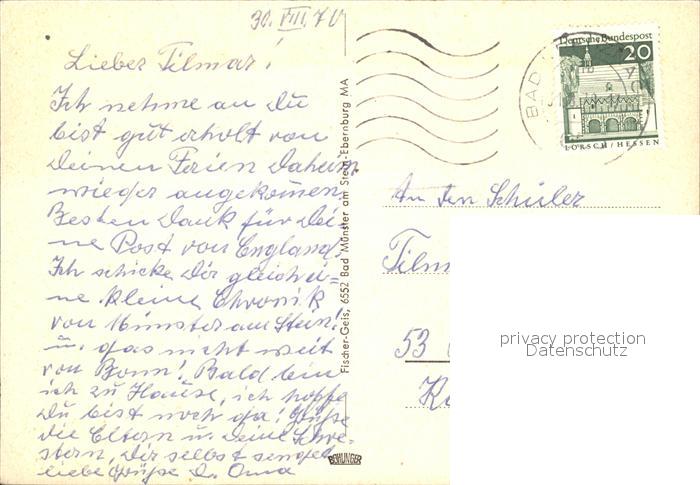 30. VIII. 70
Lieber Tilmar!
Ich nehme an Du
bist gut erholt von
Deinen Ferien Daheim
wieder angekommen
Besten Dank für Dei-
ne Post von England.
Ich schicke Dir gleich ei-
ne kleine Chronik
von Münster am Stein!
u. das nicht weit
von Bonn! Bald bin
ich zu Hause, ich hoffe
Du bist noch da! Grüße
die Eltern u. Deine Schwe-
stern, Dir selbst sendet
liebe Grüße D. Oma
Fischer-Geis, 6552 Bad Münster am Stein-Ebernburg MA
BOHLINGER
Deutsche Bundespost
20
LORSCH/HESSEN
BAD
An den Schüler
Tilm
53
privacy protection
Datenschutz